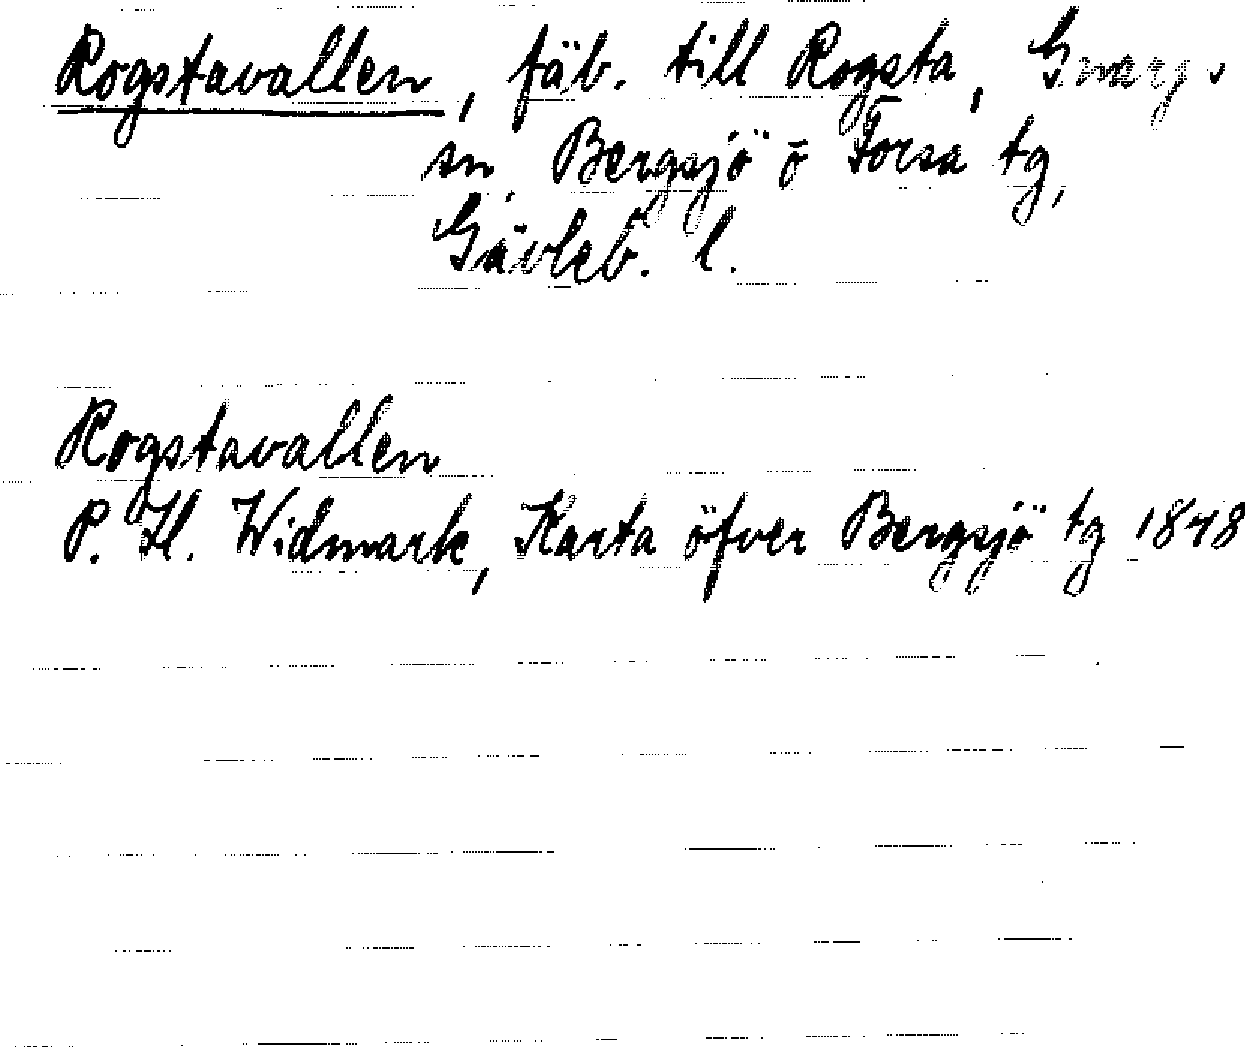 Rogstavallen, fäb. till Rogsta, Gnarps
sn, Bergsjö o Forsa tg,
Gävleb. l.
Rogstavallen
P. H. Widmark, Karta öfver Bergsjö tg 1848